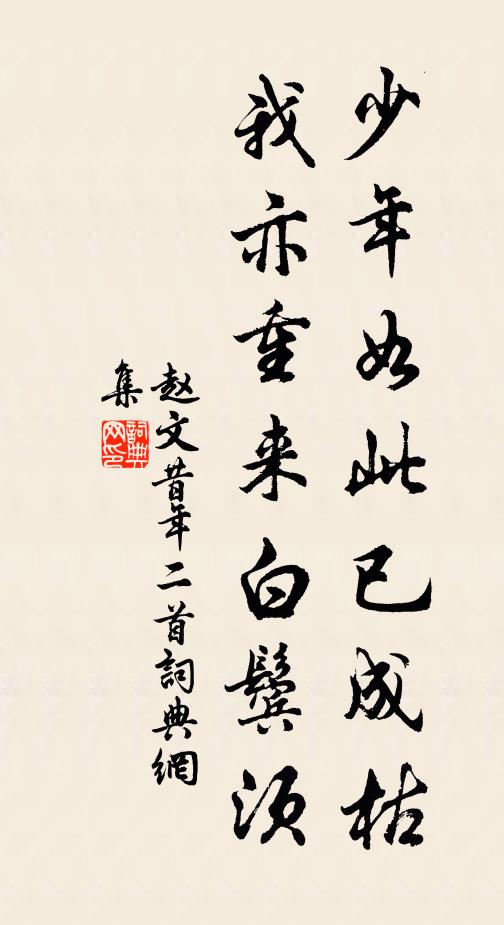 少年如此已成枯
我亦重来白鬓须
赵文昔年二首詞典網
集
詞典
网印